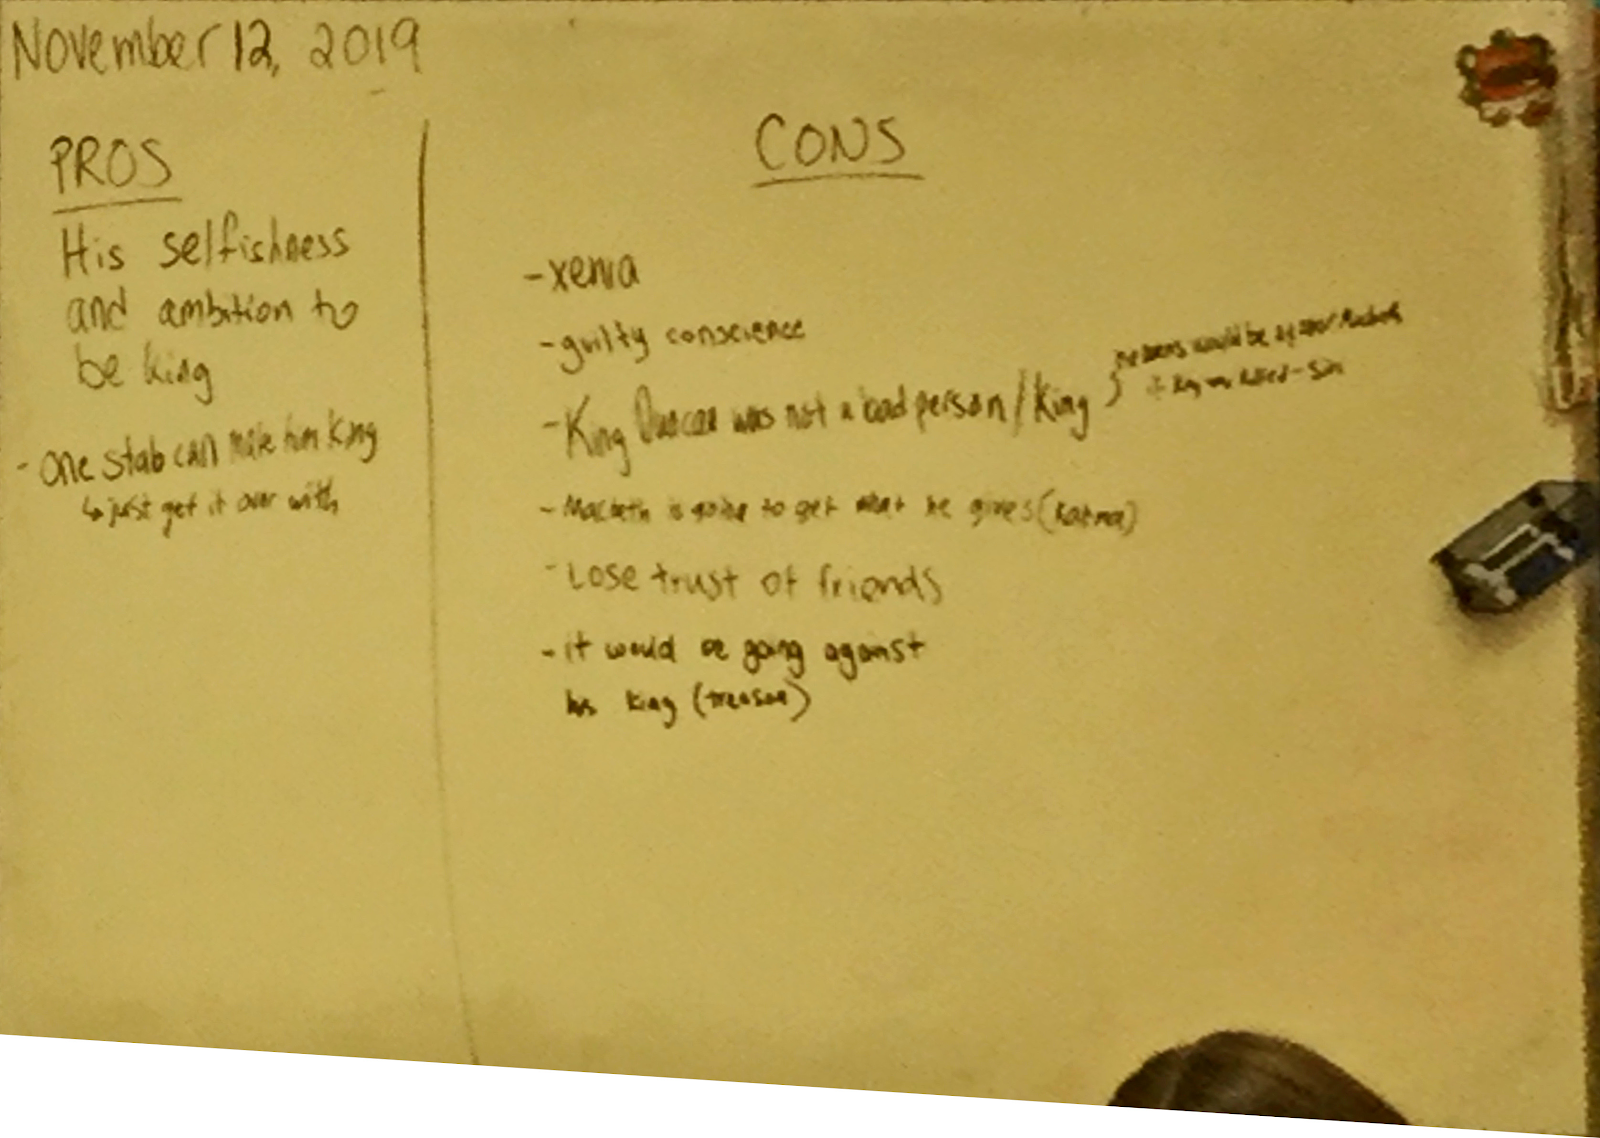 November 12, 2019
PROS
His selfishness
and ambition to
be king
- one stab can make him King
↳ just get it over with
CONS
- xenia
- guilty conscience
- King Duncan was not a bad person / King }
would be
if King was killed - sin
- Macbeth is going to get what he gives (Karma)
- Lose trust of friends
- it would be going against
his king (treason)